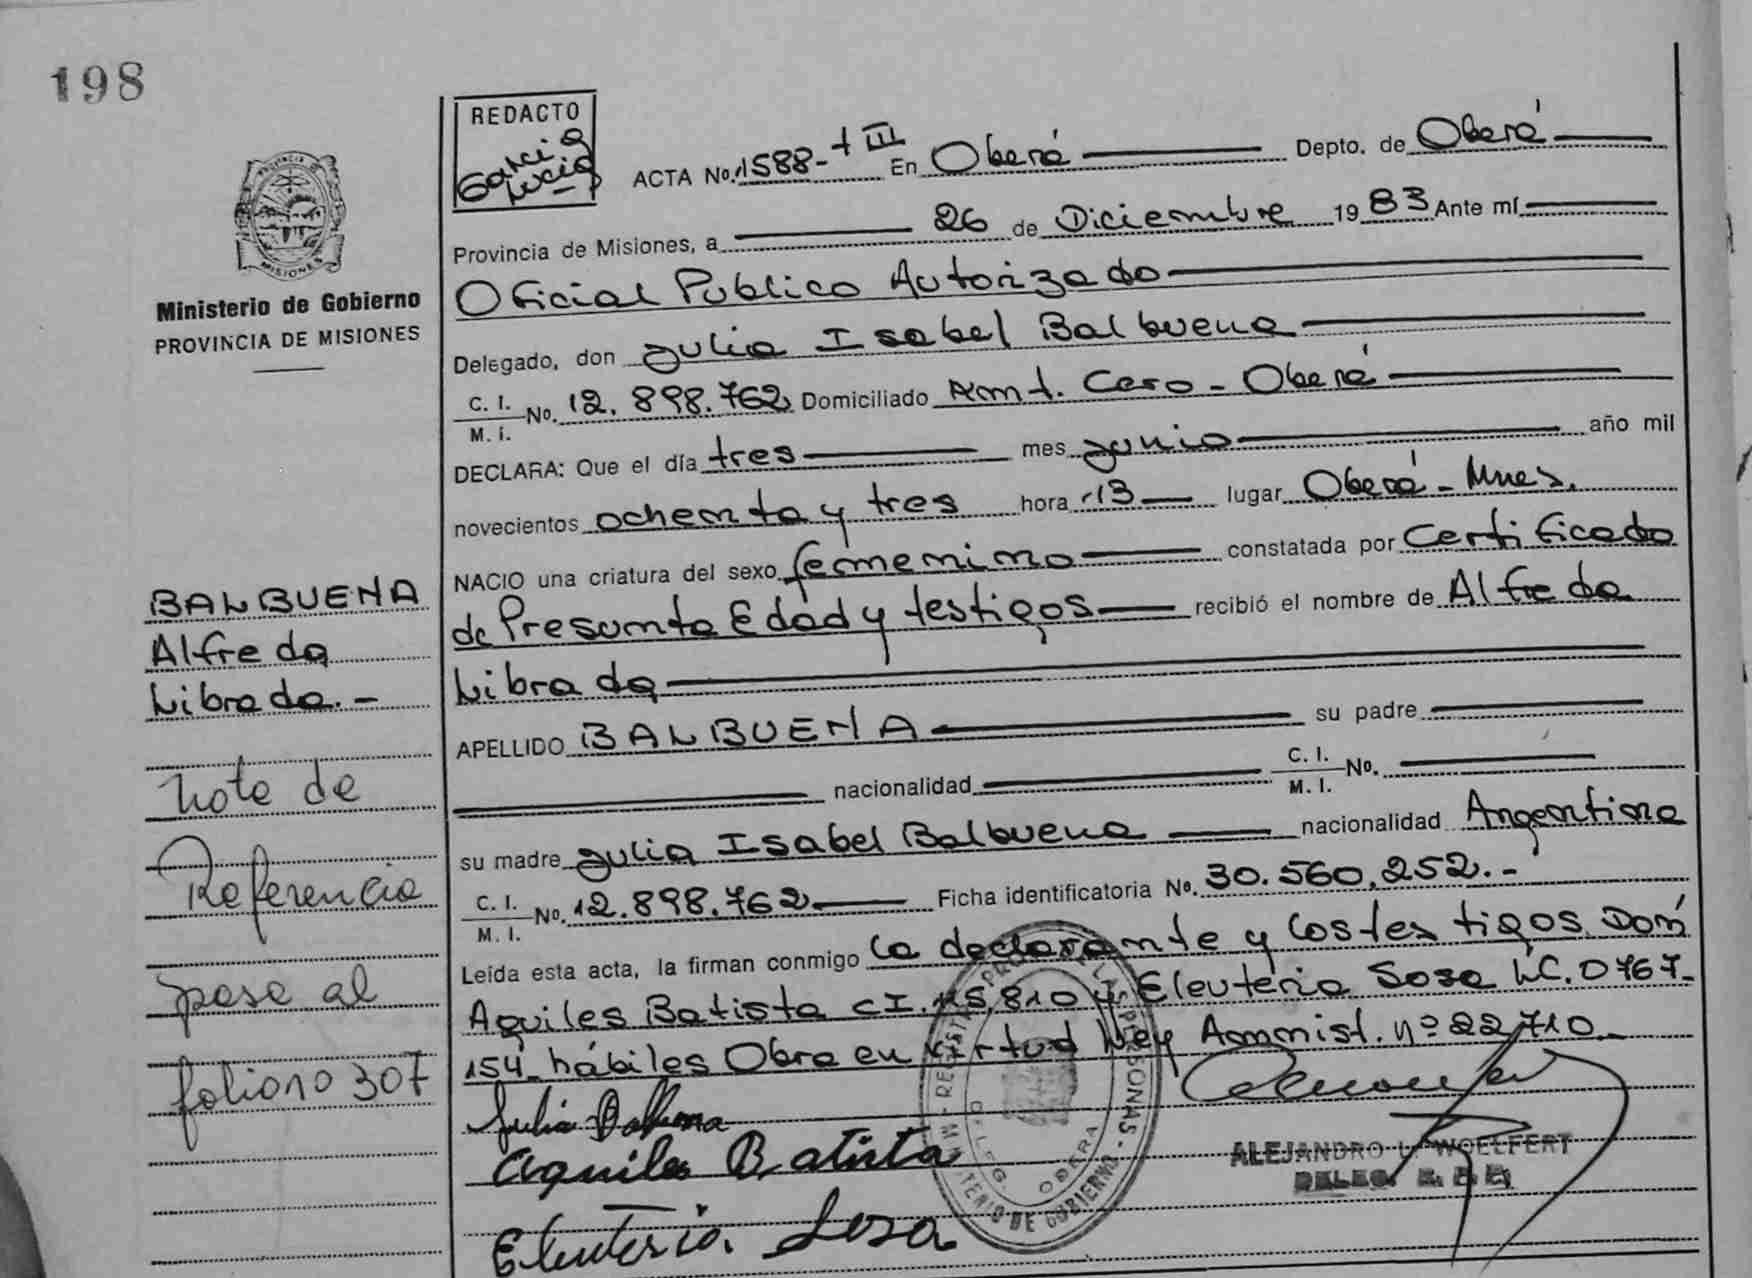 198
REDACTO
Garcia
Lucia
ACTA No. 1588-t III En Oberá Depto. de Oberá
Provincia de Misiones, a 26 de Diciembre 1983 Ante mí
Oficial Publico Autorizado
Delegado, don Julia Isabel Balbuena
C. I. / M. I. No. 12.898.762 Domiciliado Km 1. Cero - Oberá
DECLARA: Que el día tres mes junio año mil
novecientos ochenta y tres hora 13 lugar Oberá - Mnes.
NACIO una criatura del sexo femenino constatada por Certificado
de Presunta Edad y testigos recibió el nombre de Alfreda
Librada
APELLIDO BALBUENA su padre
nacionalidad C. I. / M. I. No.
su madre Julia Isabel Balbuena nacionalidad Argentina
C. I. / M. I. No. 12.898.762 Ficha identificatoria No. 30.560.252.-
Leída esta acta, la firman conmigo la declarante y los testigos Don
Aquiles Batista CI. 115.810 y Eleuteria Sosa LC. 0767-
154 hábiles Obra en Virtud Ley Amnist. nº 22.710
Julia Balbuena
Aquiles Batista
Eleuteria Sosa
ALEJANDRO L. WOELFERT
DELEG.
PROVINCIA
MISIONES
Ministerio de Gobierno
PROVINCIA DE MISIONES
BALBUENA
Alfreda
Librada.-
Nota de
Referencia
pasa al
folio no 307
MINISTERIO DE GOBIERNO - REGISTRO PROV. DE LAS PERSONAS -
DELEG. OBERA